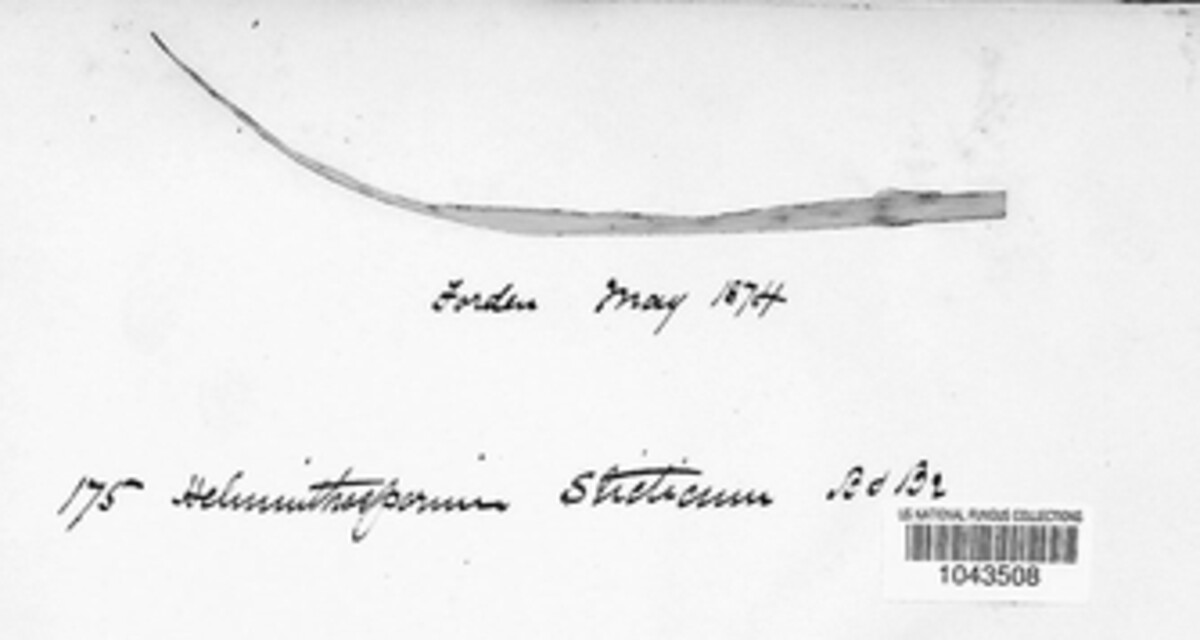 Forden May 1874
175 Helminthosporium Sticticum B & Br
US NATIONAL FUNGUS COLLECTIONS
1043508